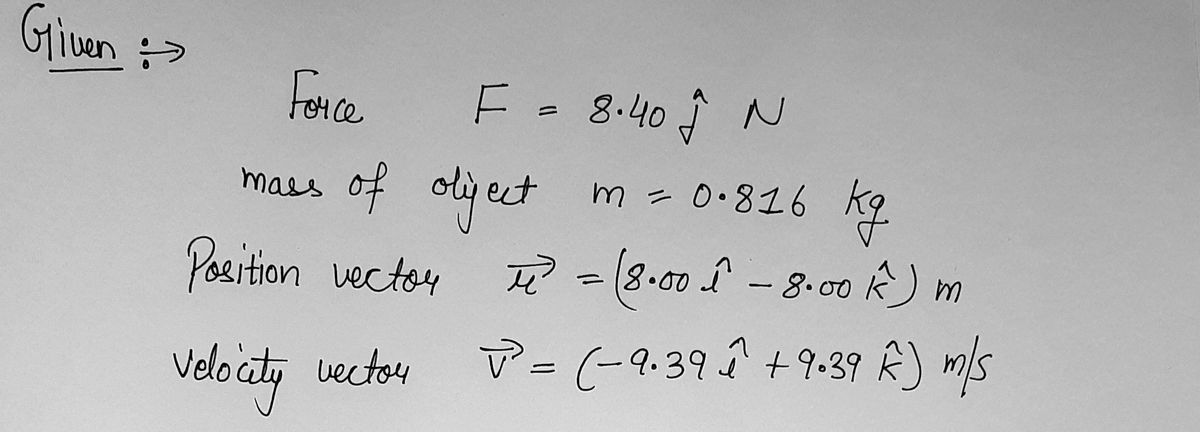 Given :→
Force F = 8.40 ĵ N
mass of object m = 0.816 kg
Position vector r⃗ = (8.00 î − 8.00 k̂) m
velocity vector v⃗ = (−9.39 î + 9.39 k̂) m/s